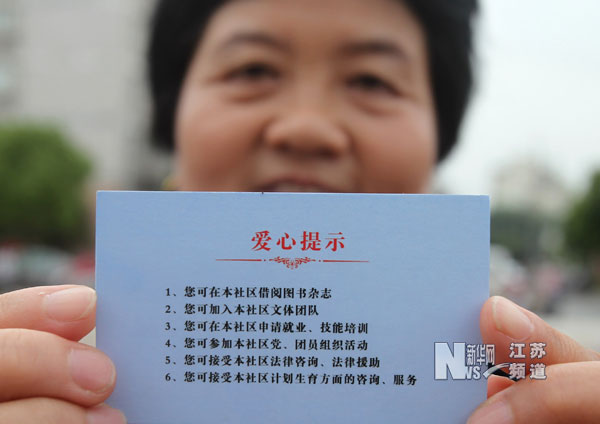 爱心提示
1、您可在本社区借阅图书杂志
2、您可加入本社区文体团队
3、您可在本社区申请就业、技能培训
4、您可参加本社区党、团员组织活动
5、您可接受本社区法律咨询、法律援助
6、您可接受本社区计划生育方面的咨询、服务
NEWS 新华网 江苏频道